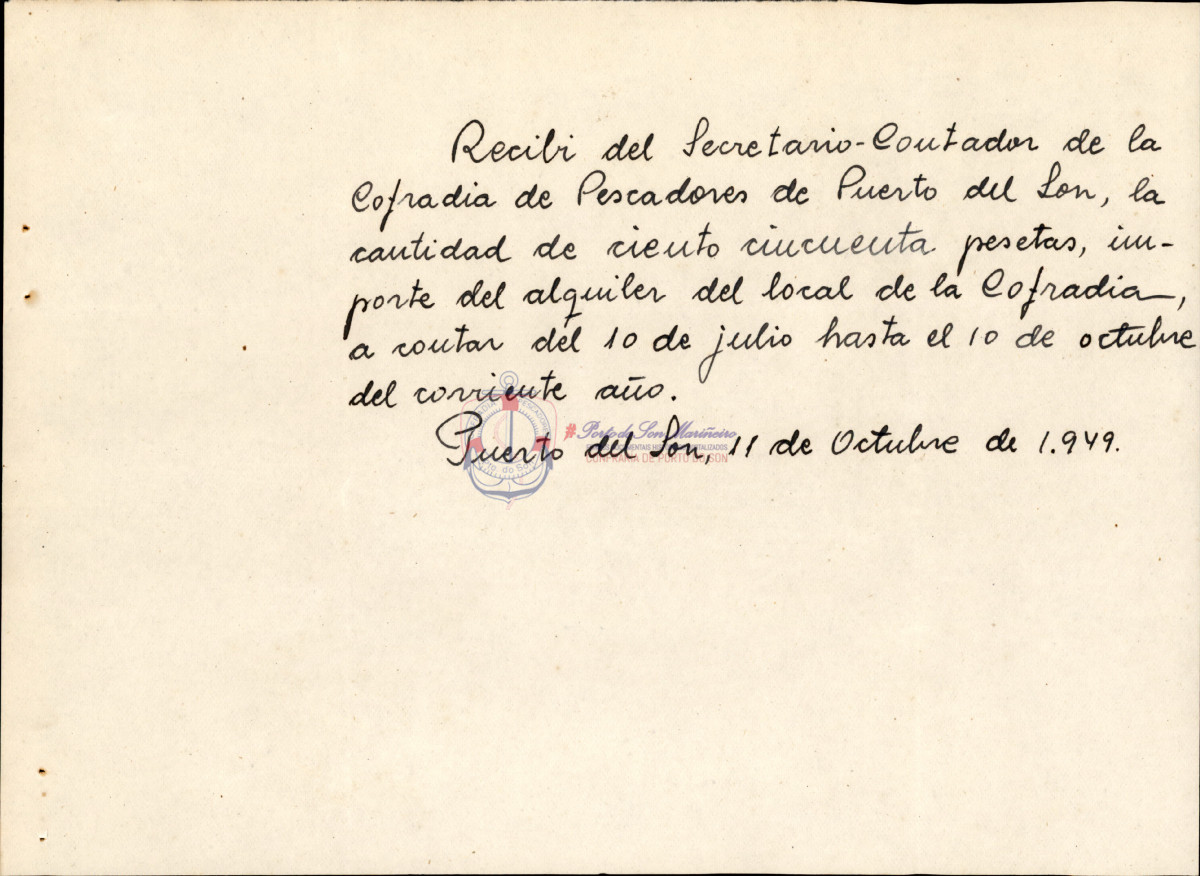 Recibi del Secretario-Contador de la
Cofradia de Pescadores de Puerto del Son, la
cantidad de ciento cincuenta pesetas, im-
porte del alquiler del local de la Cofradia,
a contar del 10 de julio hasta el 10 de octubre
del corriente año.
Puerto del Son, 11 de Octubre de 1.949.
#Porto do Son Mariñeiro
CONFRARÍA DE PORTO DO SON